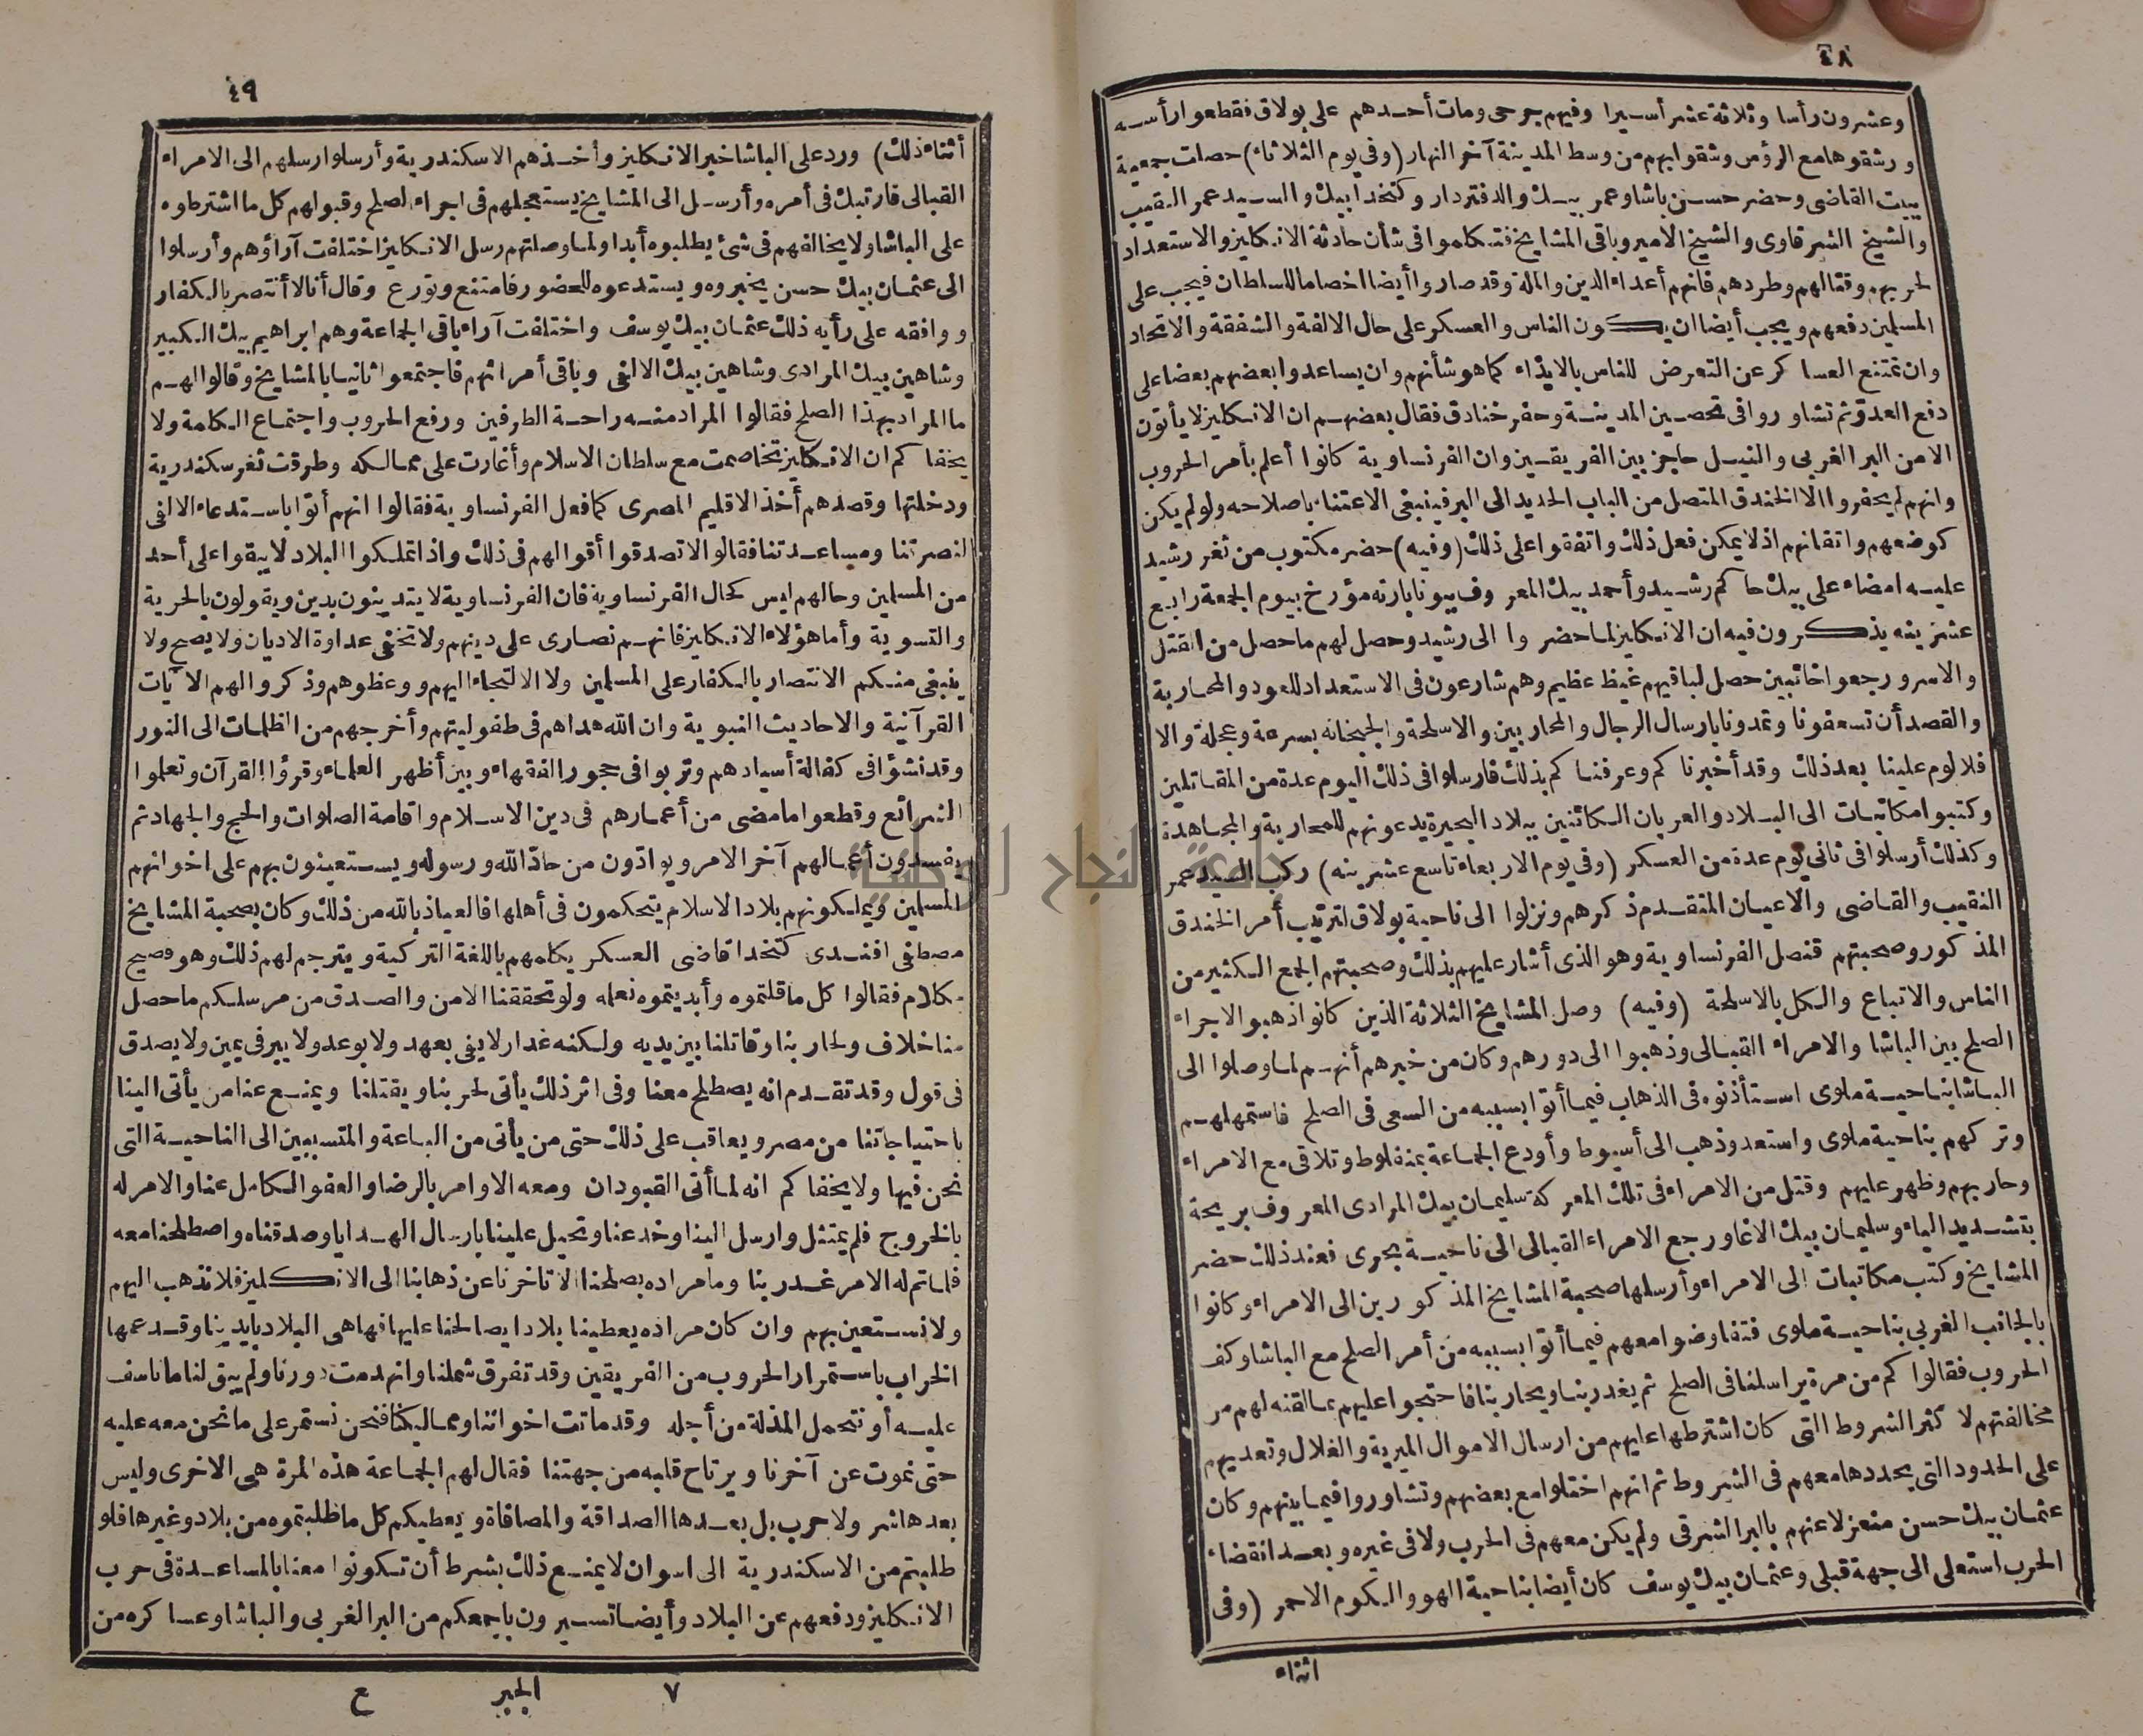 ٤٨
وعشرون رأسا وثلاثة عشر أسيرا وفيهم جرحى ومات أحدهم على بولاق فقطعوا رأسه
ورشقوها مع الرؤس وشقوا بهم من وسط المدينة آخر النهار (وفي يوم الثلاثاء) حصلت جمعية
ببيت القاضى وحضر حسن باشا وعمر بيك والدفتردار وكتخدا بيك والسيد عمر النقيب
والشيخ الشرقاوى والشيخ الامير وباقى المشايخ فتكلموا فى شأن حادثة الانكليز والاستعداد
لحربهم وقتالهم وطردهم فانهم أعداء الدين والملة وقد صاروا أيضا اخصاما للسلطان فيجب على
المسلمين دفعهم ويجب أيضا ان يكون الناس والعسكر على حال الالفة والشفقة والاتحاد
وان تمتنع العساكر عن التعرض للناس بالايذاء كما هو شأنهم وان يساعدوا بعضهم بعضا على
دفع العدو ثم تشاوروا فى تحصين المدينة وحفر خنادق فقال بعضهم ان الانكليز لا يأتون
الا من البر الغربى والنيل حاجز بين الفريقين وان الفرنساوية كانوا أعلم بأمر الحروب
وانهم لم يحفروا الا الخندق المتصل من الباب الحديد الى البر فينبغى الاعتناء باصلاحه ولو لم يكن
كوضعهم واتقانهم اذ لا يمكن فعل ذلك واتفقوا على ذلك (وفيه) حضر مكتوب من ثغر رشيد
عليه امضاء على بيك حاكم رشيد وأحمد بيك المعروف ببونابارته مؤرخ بيوم الجمعة رابع
عشرينه يذكرون فيه ان الانكليز لما حضروا الى رشيد وحصل لهم ما حصل من القتل
والاسر ورجعوا خائبين حصل لباقيهم غيظ عظيم وهم شارعون فى الاستعداد للعود والمحاربة
والقصد أن تسعفونا وتمدونا بارسال الرجال والمحاربين والاسلحة والجبخانه بسرعة وعجلة والا
فلا لوم علينا بعد ذلك وقد أخبرناكم وعرفناكم بذلك فارسلوا فى ذلك اليوم عدة من المقاتلين
وكتبوا مكاتبات الى البلاد والعربان الكائنين ببلاد البحيرة يدعونهم للمحاربة والمجاهدة
وكذلك أرسلوا فى ثانى يوم عدة من العسكر (وفى يوم الاربعاء تاسع عشرينه) ركب السيد عمر
النقيب والقاضى والاعيان المتقدم ذكرهم ونزلوا الى ناحية بولاق لترتيب أمر الخندق
المذكور وصحبتهم قنصل الفرنساوية وهو الذى أشار عليهم بذلك وصحبتهم الجمع الكثير من
الناس والاتباع والكل بالاسلحة (وفيه) وصل المشايخ الثلاثة الذين كانوا ذهبوا لاجراء
الصلح بين الباشا والامراء القبالى وذهبوا الى دورهم وكان من خبرهم أنهم لما وصلوا الى
الباشا بناحية ملوى استأذنوه فى الذهاب فيما أتوا بسببه من السعى فى الصلح فاستمهلهم
وتركهم بناحية ملوى واستعد وذهب الى أسيوط وأودع الجماعة بمنفلوط وتلاقى مع الامراء
وحاربهم وظهر عليهم وقتل من الامراء فى تلك المعركة سليمان بيك المرادى المعروف بريحة
بتشديد الياء وسليمان بيك الاغا ورجع الامراء القبالى الى ناحية بحرى فعند ذلك حضر
المشايخ وكتب مكاتبات الى الامراء وأرسلها صحبة المشايخ المذكورين الى الامراء وكانوا
بالجانب الغربى بناحية ملوى فتفاوضوا معهم فيما أتوا بسببه من أمر الصلح مع الباشا وكف
الحروب فقالوا كم من مرة يراسلنا فى الصلح ثم يغدر بنا ويحاربنا فاحتجوا عليهم بما لقنه لهم من
مخالفتهم لا كثر الشروط التى كان اشترطها عليهم من ارسال الاموال الميرية والغلال وتعديهم
على الحدود التى يحددها معهم فى الشروط ثم انهم اختلوا مع بعضهم وتشاوروا فيما بينهم وكان
عثمان بيك حسن منعزلا عنهم بالبر الشرقى ولم يكن معهم فى الحرب ولا فى غيره وبعد انقضاء
الحرب استعلى الى جهة قبلى وعثمان بيك يوسف كان أيضا بناحية الهو والكوم الاحمر (وفى
اثناء
٤٩
أثناء ذلك) ورد على الباشا خبر الانكليز وأخذهم الاسكندرية وأرسلوا رسلهم الى الامراء
القبالى فارتبك فى أمره وأرسل الى المشايخ يستعجلهم فى اجراء الصلح وقبولهم كل ما اشترطوه
على الباشا ولا يخالفهم فى شئ يطلبوه أبدا ولما وصلتهم رسل الانكليز اختلفت آراؤهم وأرسلوا
الى عثمان بيك حسن يخبروه ويستدعوه للحضور فامتنع وتورع وقال أنا لا أنتصر بالكفار
ووافقه على رأيه ذلك عثمان بيك يوسف واختلفت آراء باقى الجماعة وهم ابراهيم بيك الكبير
وشاهين بيك المرادى وشاهين بيك الالفى وباقى أمرائهم فاجتمعوا ثانيا بالمشايخ وقالوا لهم
ما المراد بهذا الصلح فقالوا المراد منه راحة الطرفين ورفع الحروب واجتماع الكلمة ولا
يخفاكم ان الانكليز تخاصمت مع سلطان الاسلام وأغارت على ممالكه وطرقت ثغر سكندرية
ودخلتها وقصدهم أخذ الاقليم المصرى كما فعل الفرنساوية فقالوا انهم أتوا باستدعاء الالفى
لنصرتنا ومساعدتنا فقالوا لا تصدقوا أقوالهم فى ذلك واذا تملكوا البلاد لا يبقوا على أحد
من المسلمين وحالهم ليس كحال الفرنساوية فان الفرنساوية لا يتدينون بدين ويقولون بالحرية
والتسوية وأما هؤلاء الانكليز فانهم نصارى على دينهم ولا تخفى عداوة الاديان ولا يصح ولا
ينبغى منكم الانتصار بالكفار على المسلمين ولا الالتجاء اليهم ووعظوهم وذكروا لهم الآيات
القرآنية والاحاديث النبوية وان الله هداهم فى طفوليتهم وأخرجهم من الظلمات الى النور
وقد نشؤا فى كفالة أسيادهم وتربوا فى حجور الفقهاء وبين أظهر العلماء وقرؤا القرآن وتعلموا
الشرائع وقطعوا ما مضى من أعمارهم فى دين الاسلام واقامة الصلوات والحج والجهاد ثم
يفسدون أعمالهم آخر الامر ويوادّون من حادّ الله ورسوله ويستعينون بهم على اخوانهم
المسلمين ويملكونهم بلاد الاسلام يتحكمون فى أهلها فالعياذ بالله من ذلك وكان بصحبة المشايخ
مصطفى افندى كتخدا قاضى العسكر يكلمهم باللغة التركية ويترجم لهم ذلك وهو فصيح
كلام فقالوا كل ما قلتموه وأبديتموه نعلمه ولو تحققنا الامن والصدق من مرسلكم ما حصل
منا خلاف ولحاربنا وقاتلنا بين يديه ولكنه غدار لا يفى بعهد ولا بوعد ولا يبر فى يمين ولا يصدق
فى قول وقد تقدم انه يصطلح معنا وفى اثر ذلك يأتى لحربنا ويقتلنا ويمنع عنا من يأتى الينا
باحتياجاتنا من مصر ويعاقب على ذلك حتى من يأتى من الباعة والمتسببين الى الناحية التى
نحن فيها ولا يخفاكم انه لما أتى القبودان ومعه الاوامر بالرضا والعفو الكامل عنا والامر له
بالخروج فلم يمتثل وارسل الينا وخدعنا وتحيل علينا بارسال الهدايا وصدقناه واصطلحنا معه
فلما تم له الامر غدر بنا وما مراده بصلحنا الا تاخرنا عن ذهابنا الى الانكليز فلا نذهب اليهم
ولا نستعين بهم وان كان مراده يعطينا بلادا يصالحنا عليها فها هى البلاد بايدينا وقد عمها
الخراب باستمرار الحروب من الفريقين وقد تفرق شملنا وانهدمت دورنا ولم يبق لنا ما ناسف
عليه أو نتحمل المذلة من أجله وقد ماتت اخواننا ومماليكنا فنحن نستمر على ما نحن معه عليه
حتى نموت عن آخرنا ويرتاح قلبه من جهتنا فقال لهم الجماعة هذه المرة هى الاخرى وليس
بعدها شر ولا حرب بل بعدها الصداقة والمصافاة ويعطيكم كل ما طلبتموه من بلاد وغيرها فلو
طلبتم من الاسكندرية الى اسوان لا يمنع ذلك بشرط أن تكونوا معنا بالمساعدة فى حرب
الانكليز ودفعهم عن البلاد وأيضا تسيرون باجمعكم من البر الغربى والباشا وعساكره من
٧ الجبر ع
جامعة النجاح الوطنية